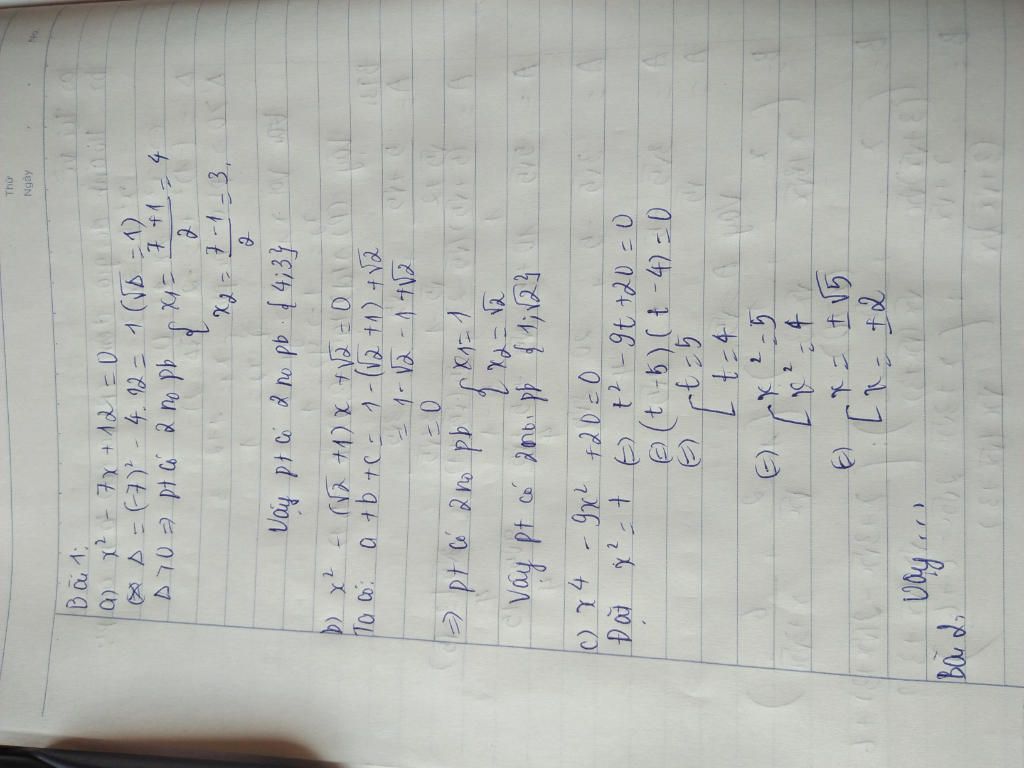 No.
Thứ
Ngày
Bài 1:
a) x² - 7x + 12 = 0
Δ = (-7)² - 4.12 = 1 (√Δ = 1)
Δ > 0 => pt có 2 no pb { x1 = (7 + 1)/2 = 4
x2 = (7 - 1)/2 = 3.
Vậy pt có 2 no pb {4;3}
b) x² - (√2 + 1)x + √2 = 0
Ta có: a + b + c = 1 - (√2 + 1) + √2
= 1 - √2 - 1 + √2
= 0
=> pt có 2 no pb { x1 = 1
x2 = √2
Vậy pt có 2 no pb {1;√2}
c) x⁴ - 9x² + 20 = 0
Đặt x² = t (=) t² - 9t + 20 = 0
(=) (t - 5)(t - 4) = 0
(=) [ t = 5
t = 4
(=) [ x² = 5
x² = 4
(=) [ x = ±√5
x = ±2
Vậy ...
Bài 2: